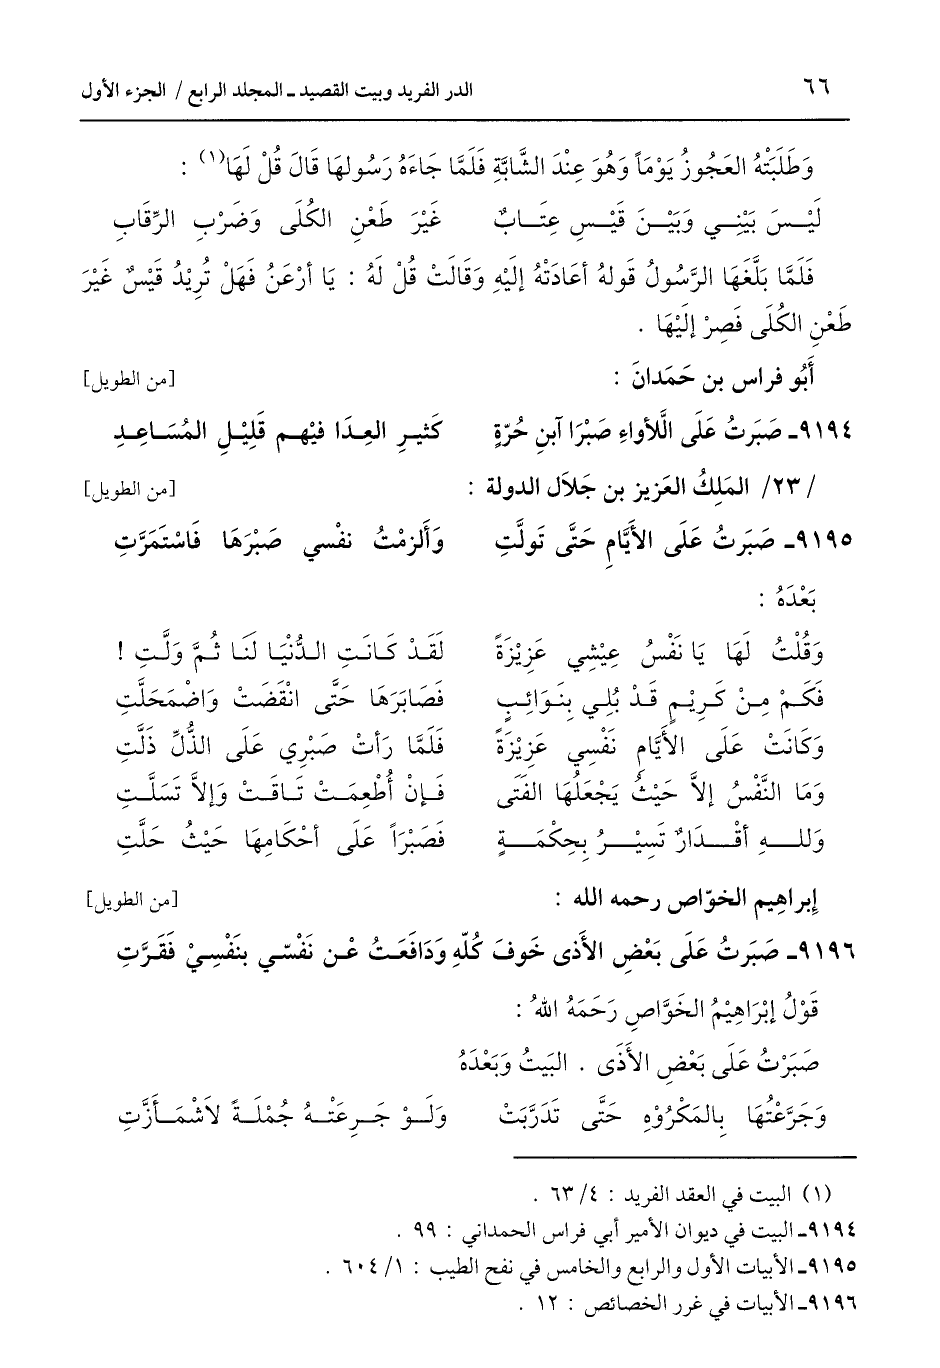 ٦٦ الدر الفريد وبيت القصيد ـ المجلد الرابع / الجزء الأول
وَطَلَبَتْهُ العَجوزُ يَوْمَاً وَهُوَ عِنْدَ الشَّابَّةِ فَلَمَّا جَاءَهُ رَسُولهَا قَالَ قُلْ لَهَا(١) :
لَيْسَ بَيْنِي وَبَيْنَ قَيْسٍ عِتَابٌ غَيْرَ طَعْنِ الكُلَى وَضَرْبِ الرِّقَابِ
فَلَمَّا بَلَّغَهَا الرَّسُولُ قولهُ أعَادَتْهُ إلَيْهِ وَقَالَتْ قُلْ لَهُ : يَا أرْعَنُ فَهَلْ تُرِيْدُ قَيْسٌ غَيْرَ
طَعْنِ الكُلَى فَصِرْ إلَيْهَا .
أَبُو فراس بن حَمَدانَ : [من الطويل]
٩١٩٤ـ صَبَرتُ عَلَى اللَّأواءِ صَبْرَا آبنِ حُرّةٍ كَثيرِ العِدَا فيْهم قَلِيْلِ المُسَاعِدِ
/ ٢٣/ المَلِكُ العَزيز بن جَلاَل الدولة : [من الطويل]
٩١٩٥ـ صَبَرتُ عَلَى الأيَّامِ حَتَّى تَولَّتِ وَأَلزمْتُ نفْسي صَبْرَهَا فَاسْتَمَرَّتِ
بَعْدَهُ :
وَقُلْتُ لَهَا يَا نَفْسُ عِيْشِي عَزِيْزَةً لَقَدْ كَانَتِ الدُّنْيَا لَنَا ثُمَّ وَلَّتِ !
فَكَمْ مِنْ كَرِيْمٍ قَدْ بُلِي بِنَوائِبٍ فَصَابَرَهَا حَتَّى انْقَضَتْ وَاضْمَحَلَّتِ
وَكَانَتْ عَلَى الأيَّامِ نَفْسِي عَزِيْزَةً فَلَمَّا رَأتْ صَبْرِي عَلَى الذُّلِّ ذَلَّتِ
وَمَا النَّفْسُ إلاَّ حَيْثُ يَجْعَلُهَا الفَتَى فَإنْ أُطْعِمَتْ تَاقَتْ وَإلاَّ تَسَلَّتِ
وَللهِ أقْدَارٌ تَسِيْرُ بِحِكْمَةٍ فَصَبْرَاً عَلَى أحْكَامِهَا حَيْثُ حَلَّتِ
إبراهِيم الخوّاص رحمه الله : [من الطويل]
٩١٩٦ـ صَبَرتُ عَلَى بَعْضِ الأذى خَوفَ كُلّهِ وَدَافَعَتُ عْن نَفْسّي بنَفْسِيْ فَقَرَّتِ
قَوْلُ إبْرَاهِيْمُ الخَوَّاصِ رَحَمَهُ اللهُ :
صَبَرْتُ عَلَى بَعْضِ الأَذَى . البَيتُ وَبَعْدَهُ
وَجَرَّعْتُهَا بِالمَكْرُوْهِ حَتَّى تَدَرَّبَتْ وَلَوْ جَرِعَتْهُ جُمْلَةً لاَشْمَأَزَّتِ
(١) البيت في العقد الفريد : ٤/ ٦٣ .
٩١٩٤ـ البيت في ديوان الأمير أبي فراس الحمداني : ٩٩ .
٩١٩٥ـ الأبيات الأول والرابع والخامس في نفح الطيب : ١/ ٦٠٤ .
٩١٩٦ـ الأبيات في غرر الخصائص : ١٢ .